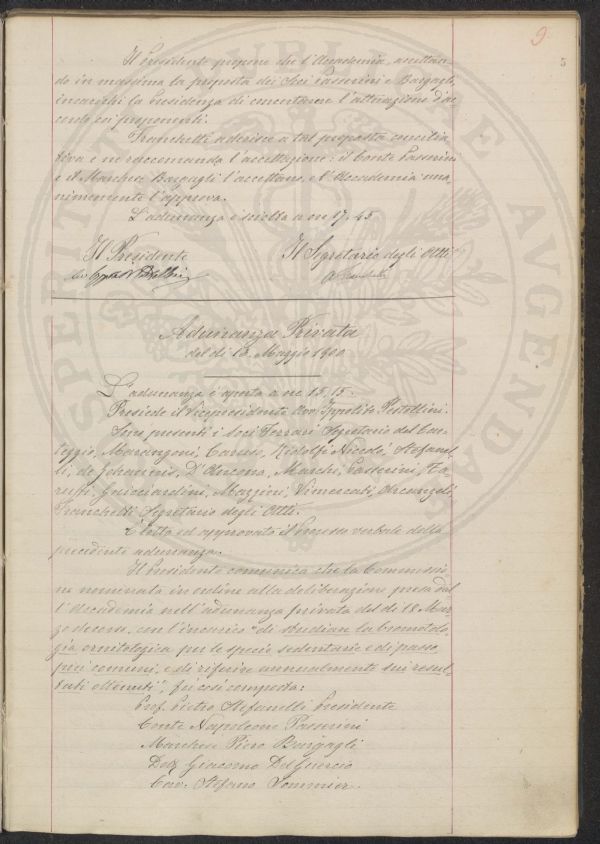 9
5
Il Presidente propone che l'Accademia, accettan-
do in massima la proposta dei Soci Passerini e Bargagli,
incarichi la Presidenza di concertarne l'attuazione d'ac-
cordo coi proponenti.
Franchetti aderisce a tal proposta concilia-
tiva e ne raccomanda l'accettazione: il Conte Passerini
e il Marchese Bargagli l'accettano, e l'Accademia una-
nimemente l'approva.
L'adunanza è sciolta a ore 17,45
Il Presidente
Il Segretario degli Atti
Adunanza Privata
del dì 13 Maggio 1900
L'adunanza è aperta a ore 15,15.
Presiede il Vicepresidente Cav. Ippolito Pestellini.
Sono presenti i Soci Ferrari Segretario del Car-
teggio, Marangoni, Caruso, Ridolfi Niccolò, Stefanel-
li, de Johannis, D'Ancona, Marchi, Passerini, Ta-
ruffi, Guicciardini, Mazzini, Vimercati, Arcangeli,
Franchetti Segretario degli Atti.
È letto ed approvato il processo verbale della
precedente adunanza.
Il Presidente comunica che la Commissio-
ne nominata in ordine alla deliberazione presa dal-
l'Accademia nell'adunanza privata del dì 18 Mar-
zo decorso, con l'incarico "di studiare la bromatolo-
gia ornitologica per le specie sedentarie e di passo,
più comuni, e di riferire annualmente sui resul-
tati ottenuti", fu così composta:
Prof. Pietro Stefanelli Presidente
Conte Napoleone Passerini
Marchese Piero Bargagli
Dott. Giacomo Del Guercio
Cav. Stefano Sommier.
PROSPERITATI PUBLICAE AUGENDAE